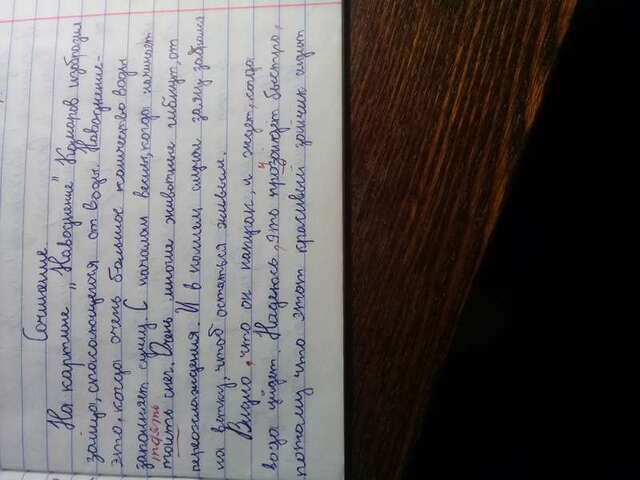 Сочинение.
На картине „Наводнение" Комаров изобразил
зайца, спасающегося от воды. Наводнение-
это, когда очень большое количество воды
заполняет сушу. С началом весны, когда начинает
таять
тоять снег. Очень многие животные гибнут, от
переохлаждения. И в нашем случаи заяц забрался
на ветку, чтоб остаться живым.
Видно, что он напуган, и ждет, когда
вода уйдет. Надеюсь, это прозойдет быстро,
потому что этот красивый зайчик сидит